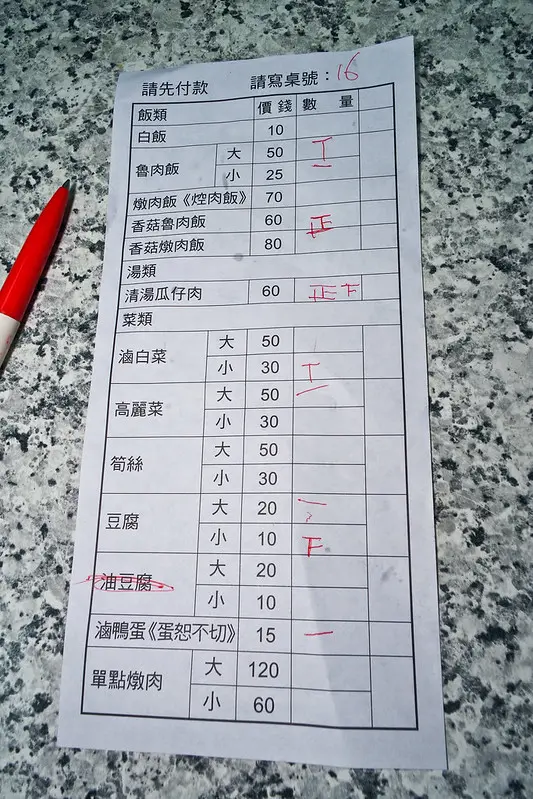 請先付款 請寫桌號：16
飯類 價錢 數量
白飯 10
魯肉飯 大 50 丅
小 25 一
燉肉飯《焢肉飯》 70
香菇魯肉飯 60 正
香菇燉肉飯 80
湯類
清湯瓜仔肉 60 正下
菜類
滷白菜 大 50
小 30 丅
高麗菜 大 50 一
小 30
筍絲 大 50
小 30
豆腐 大 20 一
小 10 下
油豆腐 大 20
小 10
滷鴨蛋《蛋恕不切》 15 一
單點燉肉 大 120
小 60